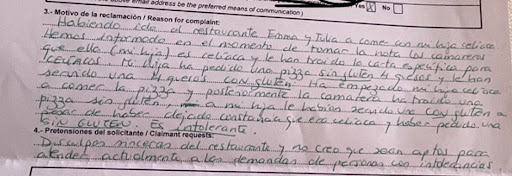 above email address be the preferred means of communication) Yes X No
3.- Motivo de la reclamación / Reason for complaint:
Habiendo ido al restaurante Emma y Julia a comer con mi hija celiaca
Hemos informado en el momento de tomar la nota los camareros
que ella (mi hija) es celiaca y le han traido la carta específica para
celiacos. Mi hija ha pedido una pizza sin gluten 4 quesos y le han
servido una 4 quesos con gluten. Ha empezado mi hija celiaca
a comer la pizza y posteriormente la camarera ha traido una
pizza sin gluten, a mi hija le habían servido una con gluten a
pesar de haber dejado constancia que era celiaca y haber pedido una
SIN GLUTEN. ES intolerante.
4.- Pretensiones del solicitante / Claimant requests:
Disculpas sinceras del restaurante y no creo que sean aptos para
atender actualmente a las demandas de personas con intolerancias